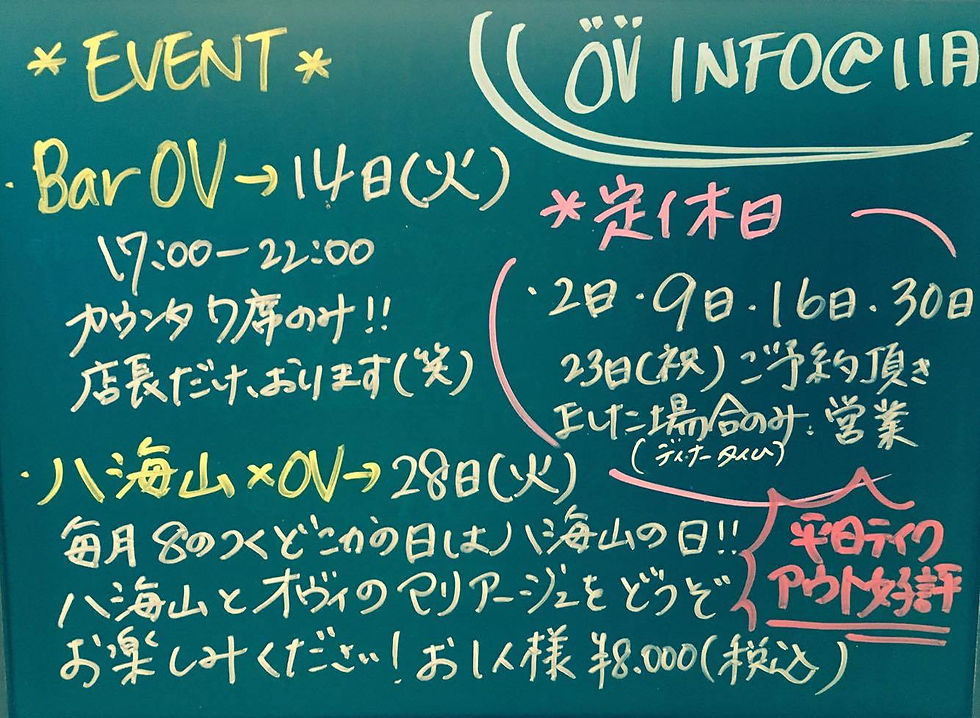 ÖV INFO@11月
*EVENT*
・Bar OV→14日(火)
17:00-22:00
カウンタワ席のみ!!
店長だけ、おります(笑)
・八海山×OV→28日(火)
毎月8のつくどこかの日は八海山の日!!
八海山とオヴィのマリアージュをどうぞ
お楽しみください!お1人様¥8.000(税込)
*定休日
・2日・9日・16日・30日
23日(祝)ご予約頂き
ました場合のみ、営業
(ディナータイム)
平日テイク
アウト好評